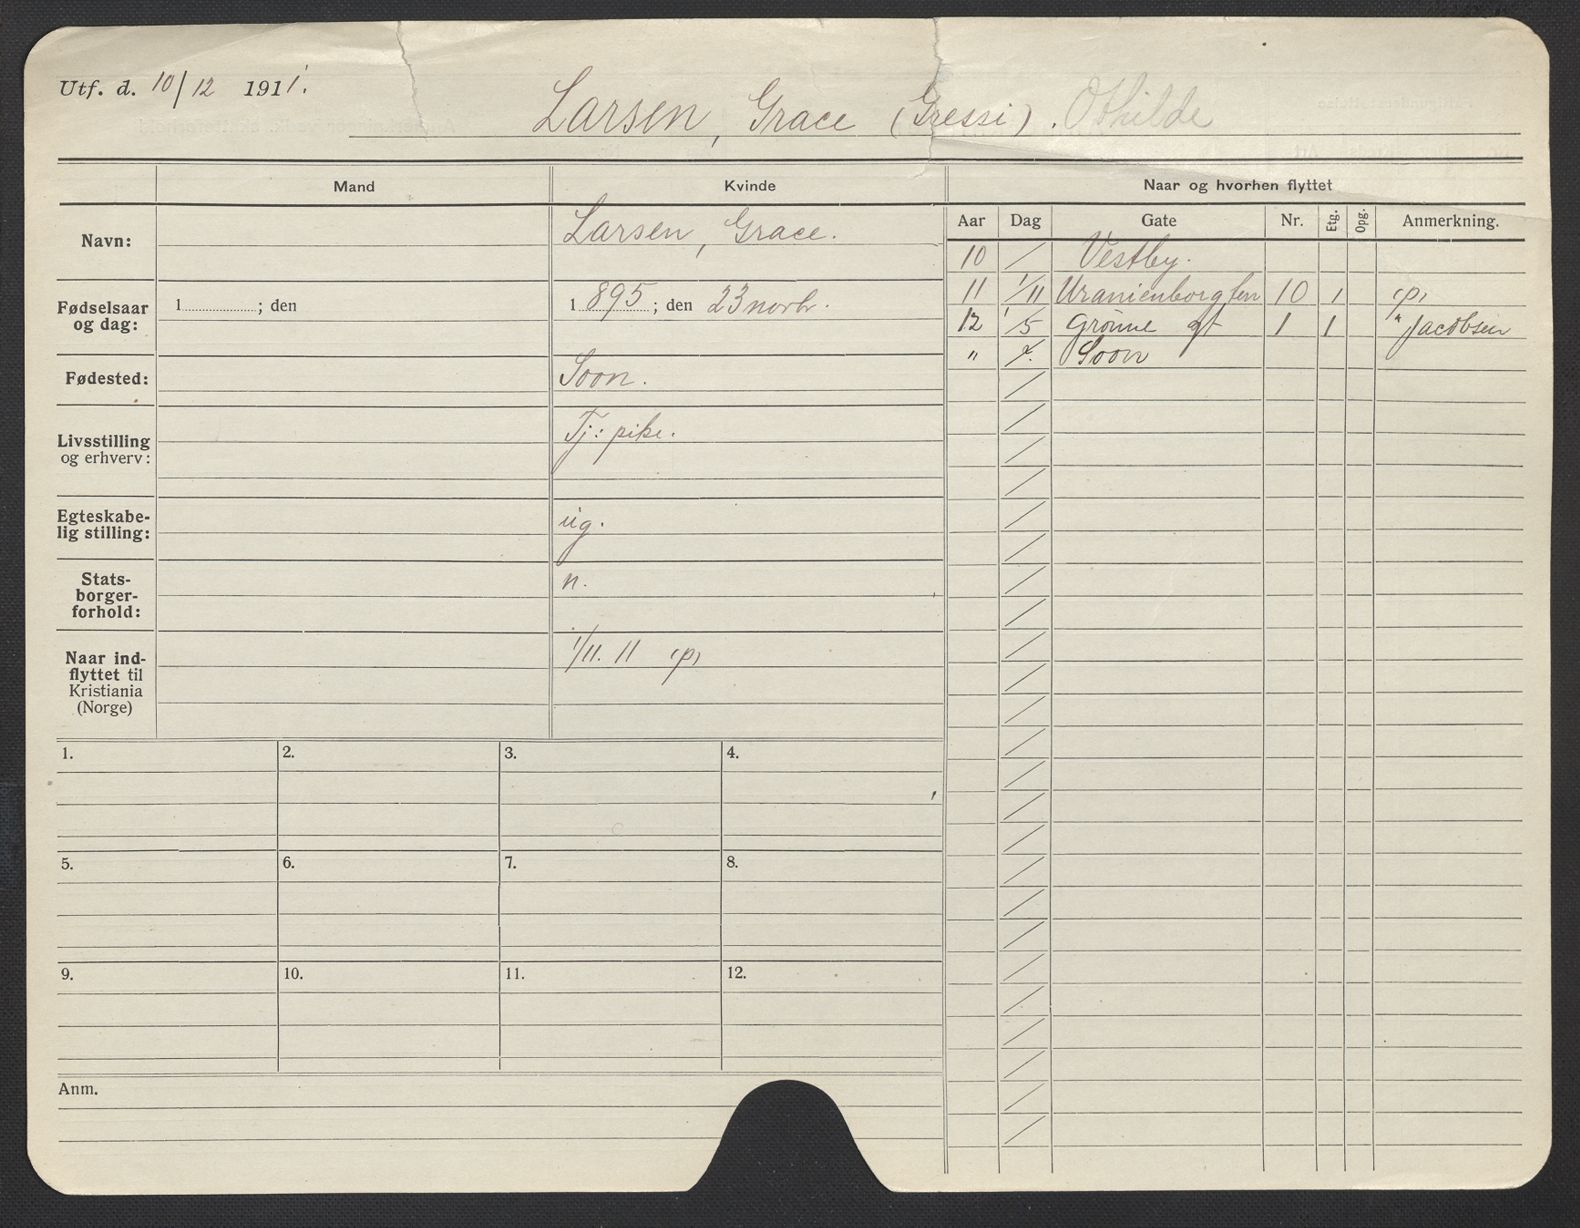 Utf. d. 10/12 1911.
Larsen, Grace (Gressi). Othilde
Mand Kvinde Naar og hvorhen flyttet
Aar Dag Gate Nr. Etg. Opg. Anmerkning.
Navn: Larsen, Grace.
Fødselsaar og dag: 1 ; den 1895; den 23 novbr.
Fødested: Soon.
Livsstilling og erhverv: Tj: pike.
Egteskabe-
lig stilling: ug.
Stats-
borger-
forhold: n.
Naar ind-
flyttet til
Kristiania
(Norge) 1/11. 11 (p)
10 / Vestby.
11 1/11 Uranienborg 10 1 (p)
12 1/5 Grønne gt 1 1 " Jacobsen
" Soon
1. 2. 3. 4.
5. 6. 7. 8.
9. 10. 11. 12.
Anm.